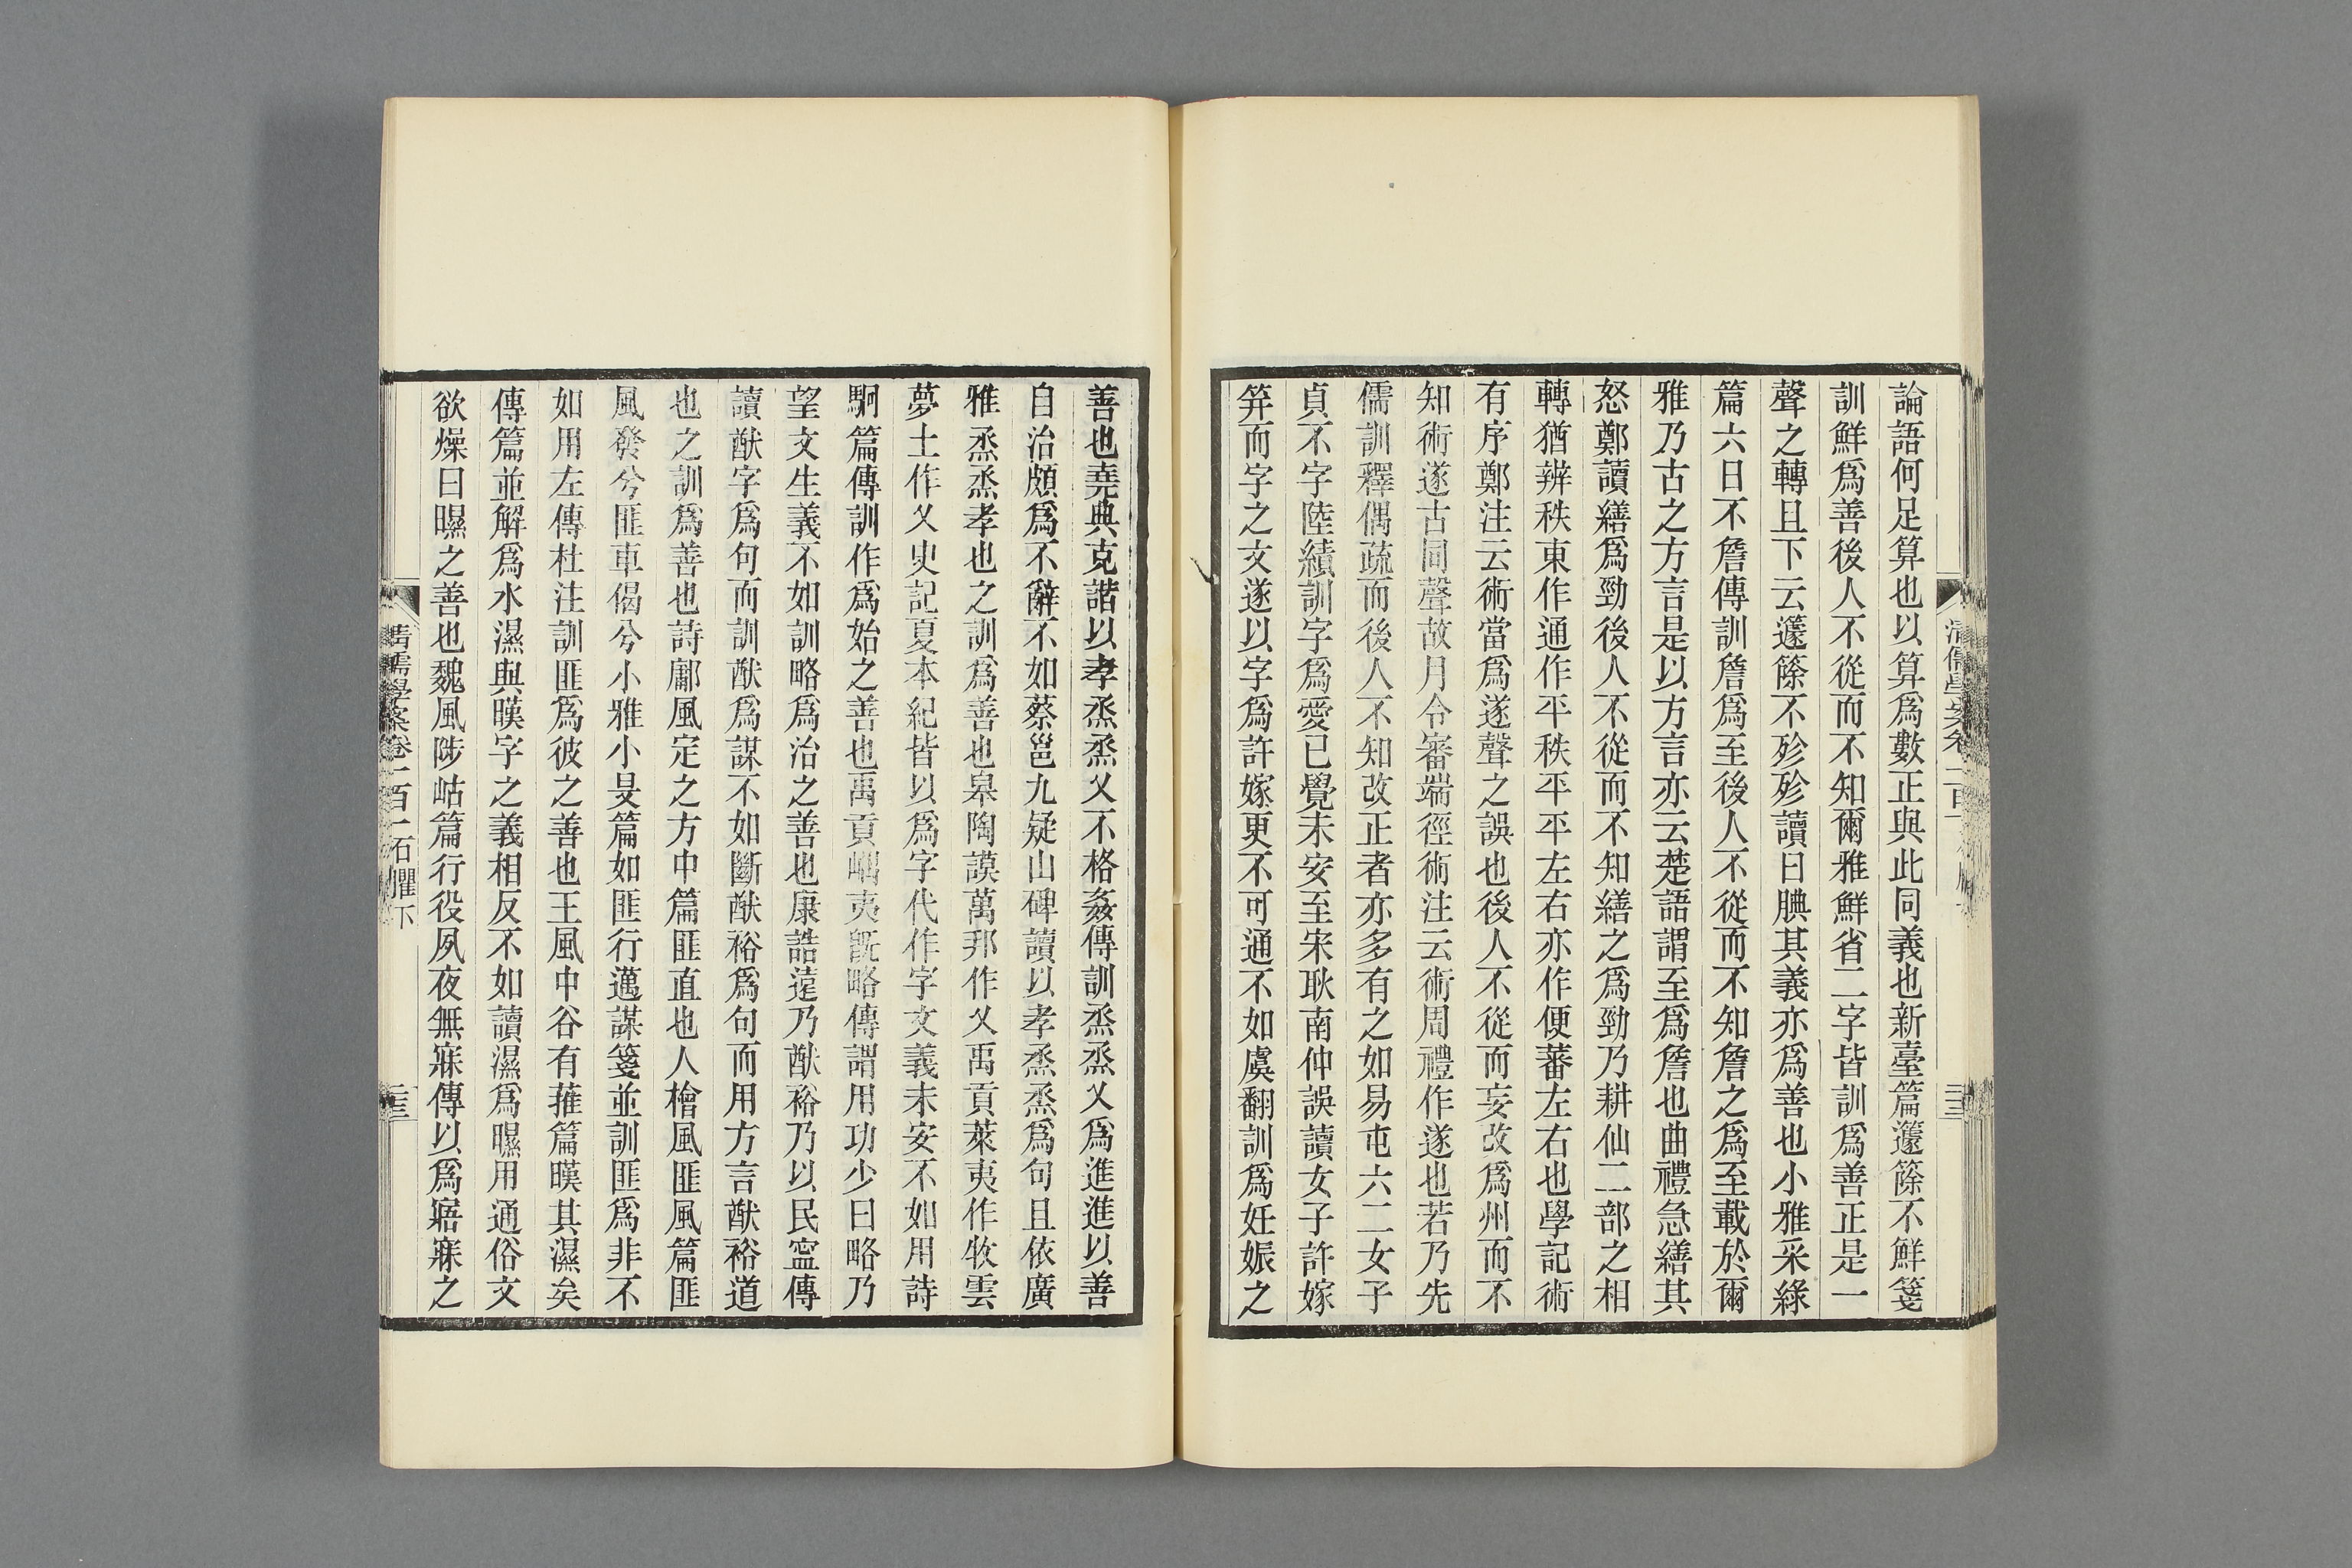 論語何足算也以算爲數正與此同義也新臺篇籧篨不鮮箋
訓鮮爲善後人不從而不知爾雅鮮省二字皆訓爲善正是一
聲之轉且下云籧篨不殄殄讀曰腆其義亦爲善也小雅采綠
篇六日不詹傳訓詹爲至後人不從而不知詹之爲至載於爾
雅乃古之方言是以方言亦云楚語謂至爲詹也曲禮急繕其
怒鄭讀繕爲勁後人不從而不知繕之爲勁乃耕仙二部之相
轉猶辨秩東作通作平秩平平左右亦作便蕃左右也學記術
有序鄭注云術當爲遂聲之誤也後人不從而妄改爲州而不
知術遂古同聲故月令審端徑術注云術周禮作遂也若乃先
儒訓釋偶疏而後人不知改正者亦多有之如易屯六二女子
貞不字陸績訓字爲愛已覺未安至宋耿南仲誤讀女子許嫁
笄而字之文遂以字爲許嫁更不可通不如虞翻訓爲妊娠之
善也堯典克諧以孝烝烝乂不格姦傳訓烝烝乂爲進進以善
自治頗爲不辭不如蔡邕九疑山碑讀以孝烝烝爲句且依廣
雅烝烝孝也之訓爲善也皋陶謨萬邦作乂禹貢萊夷作牧雲
夢土作乂史記夏本紀皆以爲字代作字文義未安不如用詩
駉篇傳訓作爲始之善也禹貢嵎夷旣略傳謂用功少曰略乃
望文生義不如訓略爲治之善也康誥遠乃猷裕乃以民寍傳
讀猷字爲句而訓猷爲謀不如斷猷裕爲句而用方言猷裕道
也之訓爲善也詩鄘風定之方中篇匪直也人檜風匪風篇匪
風發兮匪車偈兮小雅小旻篇如匪行邁謀箋並訓匪爲非不
如用左傳杜注訓匪爲彼之善也王風中谷有蓷篇暵其濕矣
傳篇並解爲水濕與暵字之義相反不如讀濕爲㬤用通俗文
欲燥曰㬤之善也魏風陟岵篇行役夙夜無寐傳以爲寤寐之
清儒學案卷二百二石臞下
三三